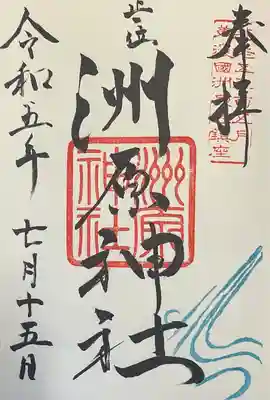 奉拝
洲原神社
洲原
神社
令和五年 七月十五日